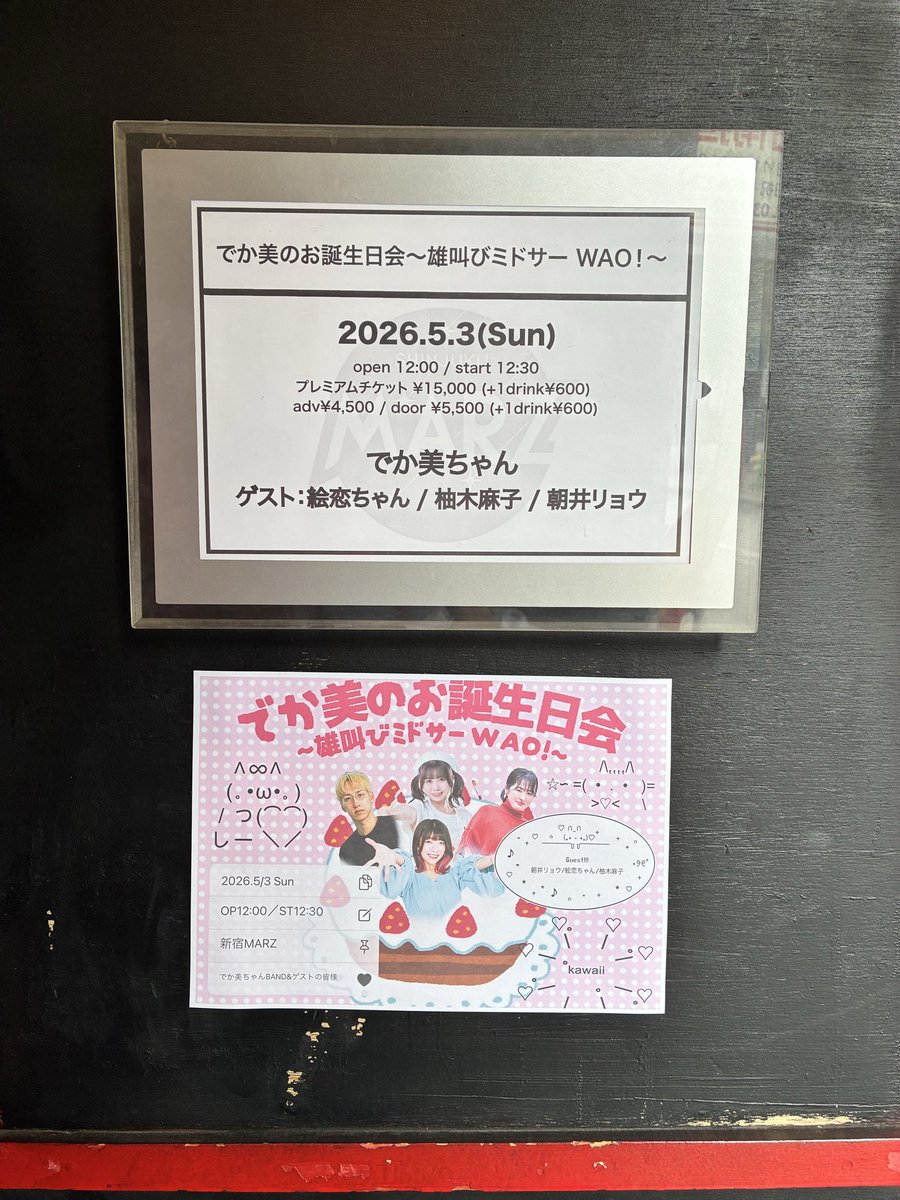 でか美のお誕生日会〜雄叫びミドサー WAO!〜
2026.5.3(Sun)
open 12:00 / start 12:30
プレミアムチケット ¥15,000 (+1drink¥600)
adv¥4,500 / door ¥5,500 (+1drink¥600)
MARZ
でか美ちゃん
ゲスト:絵恋ちゃん / 柚木麻子 / 朝井リョウ
でか美のお誕生日会
〜雄叫びミドサーWAO!〜
Guest!!!
朝井リョウ/絵恋ちゃん/柚木麻子
2026.5/3 Sun
OP12:00/ST12:30
新宿MARZ
でか美ちゃんBAND&ゲストの皆様
kawaii